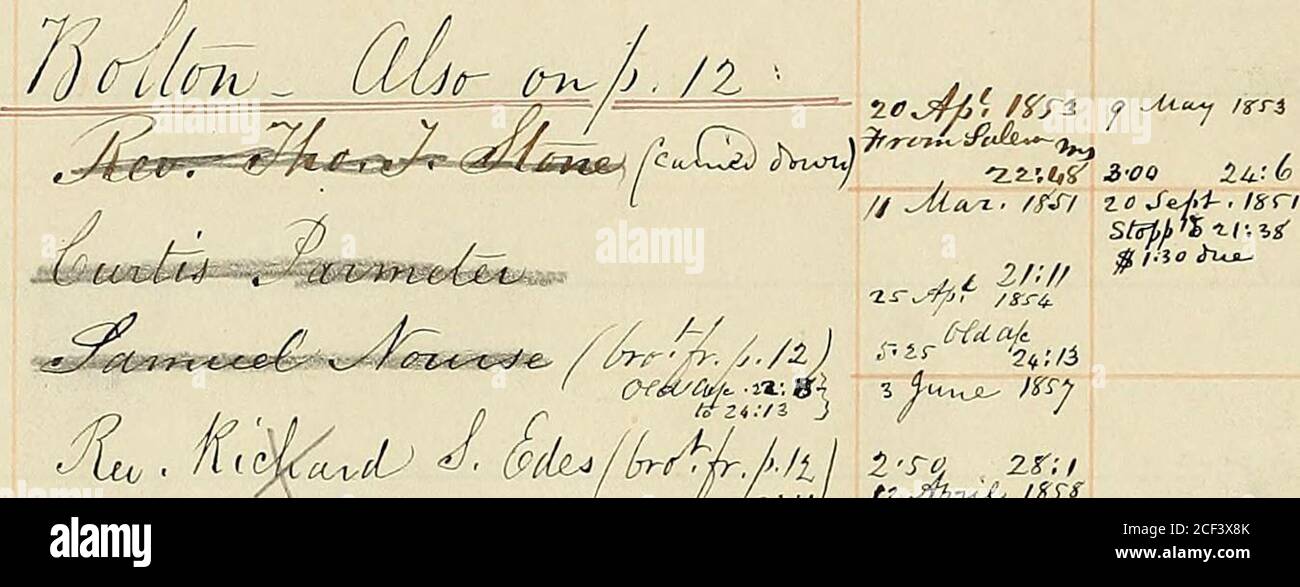 Bolton - Also on p. 12:
Rev. Tho. T. Stone (carried down)
20 Apl 1853
From Salem ms
22:48
9 May 1853
3.00 24:6
Curtis Parmeter
11 Mar. 1851
21:11
20 Sept. 1851
Stopp'd 21:38
$1.30 due
Samuel Nourse (brot. fr. p. 12)
Old a/c 22:
to 24:13
25 Apl 1854
Old a/c
5.25 24:13
Rev. Richard S. Edes (brot. fr. p. 12)
3 June 1857
2.50 28:1
April 1858
alamy
Image ID: 2CF3X8K
www.alamy.com